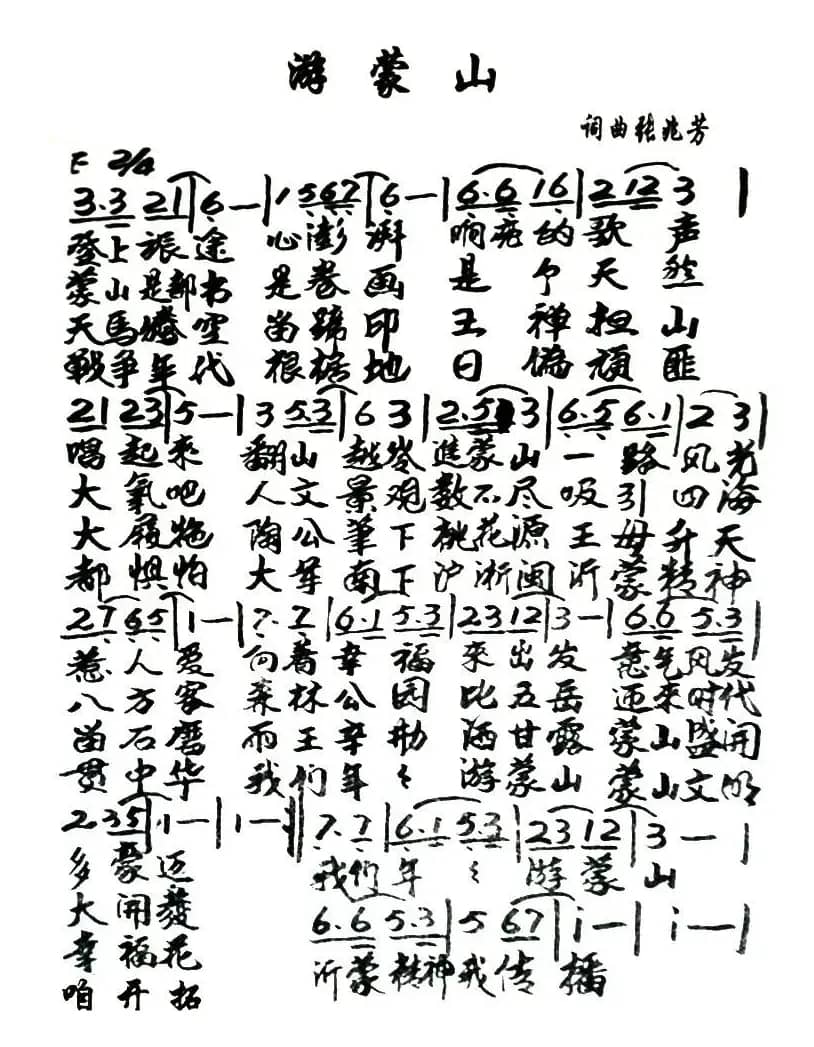 游蒙山
词曲张兆芳
F 2/4
3.3 21 | 6 — | 1 567 | 6 — | 6.6 16 | 2 12 | 3 |
登上旅途 心澎湃 响亮的歌声
蒙山是部书 是卷画 是个天然
天马腾空 留蹄印 王禅担山
战争年代 根据地 日伪顽匪
21 23 | 5 — | 3 5.3 | 6 3 | 2.5 3 | 6.5 6.1 | 2 3 |
唱起来 翻山越岭进蒙山一路风光
大氧吧 人文景观数不尽吸引四海
大履袍 陶公笔下桃花源王母升天
都惧怕 大军南下沪浙闽沂蒙精神
27 65 | 1 — | 7. 7 | 6.1 5.3 | 23 12 | 3 — | 6.6 5.3 |
惹人爱 向着幸福来出发意气风发
八方客 森林公园比五岳迎来时代
留石磨 而王辛勤洒甘露蒙山盛开
贯中华 我们年々游蒙山蒙山文明
2.35 | 1 — | 1 — :|| 7. 7 | 6.1 5.3 | 23 12 | 3 — |
多豪迈 我们年々游蒙山
大开发
幸福花 6.6 5.3 | 5 67 | i — | i — |
咱开拓 沂蒙精神我传播